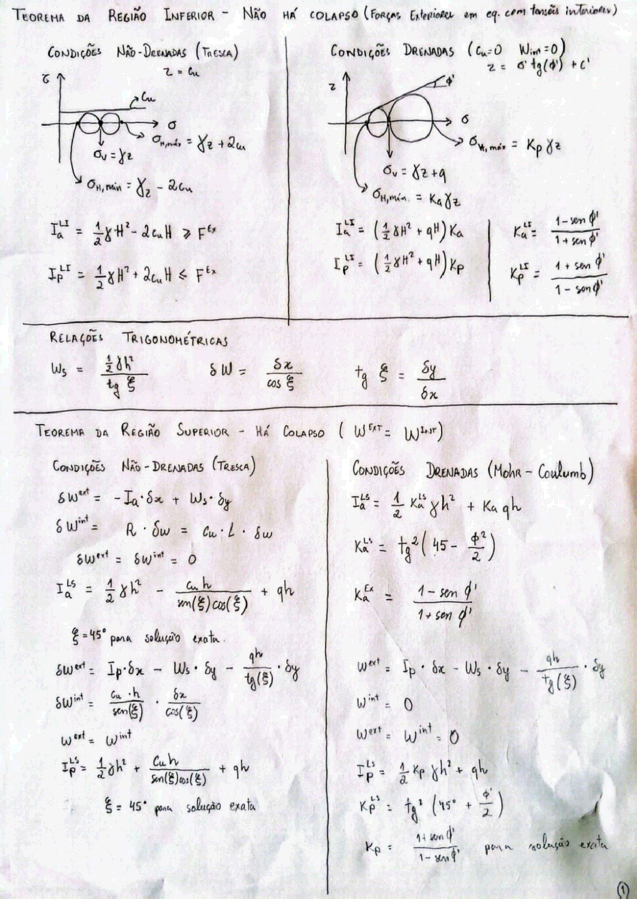 TEOREMA DA REGIÃO INFERIOR - NÃO HÁ COLAPSO (FORÇAS EXTERIORES em eq. com tensões interiores)
CONDIÇÕES NÃO-DRENADAS (TRESCA)
τ = Cu
τ
Cu
σ
σH,máx = γz + 2cu
σv = γz
σH,mín = γz - 2cu
Ia^LI = 1/2 γH² - 2cuH ≥ F^Ex
Ip^LI = 1/2 γH² + 2cuH ≤ F^Ex
CONDIÇÕES DRENADAS (Cu=0 Wint=0)
τ = σ' tg(ϕ') + c'
τ
ϕ'
σ
σH,máx = Kp γz
σv = γz + q
σH,mín. = Ka γz
Ia^LI = (1/2 γH² + qH) Ka
Ip^LI = (1/2 γH² + qH) Kp
Ka^LI = (1 - sen ϕ')/(1 + sen ϕ')
Kp^LI = (1 + sen ϕ')/(1 - sen ϕ')
RELAÇÕES TRIGONOMÉTRICAS
Ws = (1/2 γh²)/(tg ξ) δW = δx/(cos ξ) tg ξ = δy/δx
TEOREMA DA REGIÃO SUPERIOR - HÁ COLAPSO (W^EXT = W^INT)
CONDIÇÕES NÃO-DRENADAS (TRESCA)
δW^ext = -Ia·δx + Ws·δy
δW^int = R · δw = Cu · L · δw
δW^ext = δW^int = 0
Ia^LS = 1/2 γh² - (cu h)/(sen(ξ)cos(ξ)) + qh
ξ = 45° para solução exata.
δW^ext = Ip·δx - Ws·δy - qh/tg(ξ) · δy
δW^int = (cu · h)/sen(ξ) · δx/cos(ξ)
W^ext = W^int
Ip^LS = 1/2 γh² + (Cu h)/(sen(ξ)cos(ξ)) + qh
ξ = 45° para solução exata
CONDIÇÕES DRENADAS (Mohr-Coulumb)
Ia^LS = 1/2 Ka^LS γh² + Ka qh
Ka^LS = tg²(45 - ϕ²/2)
Ka^Ex = (1 - sen ϕ')/(1 + sen ϕ')
W^ext = Ip · δx - Ws · δy - qh/tg(ξ) · δy
W^int = 0
W^ext = W^int = 0
Ip^LS = 1/2 Kp γh² + qh
Kp^LS = tg²(45° + ϕ'/2)
Kp = (1 + sen ϕ')/(1 - sen ϕ') para solução exata
1